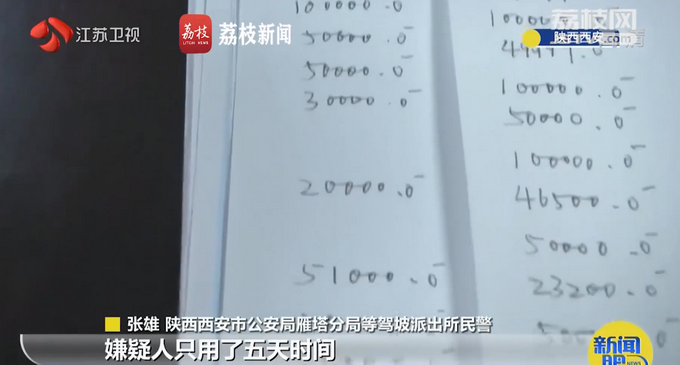 江苏卫视
荔枝
LITCHI NEWS
荔枝新闻
荔枝网
陕西西安
100000.0
50000.0
50000.0
30000.0
20000.0
51000.0
100000
49999.0
100000.0
50000.0
100000.0
46500.0
50000.0
23200.0
张雄 陕西西安市公安局雁塔分局等驾坡派出所民警
嫌疑人只用了五天时间
新闻
NEWS